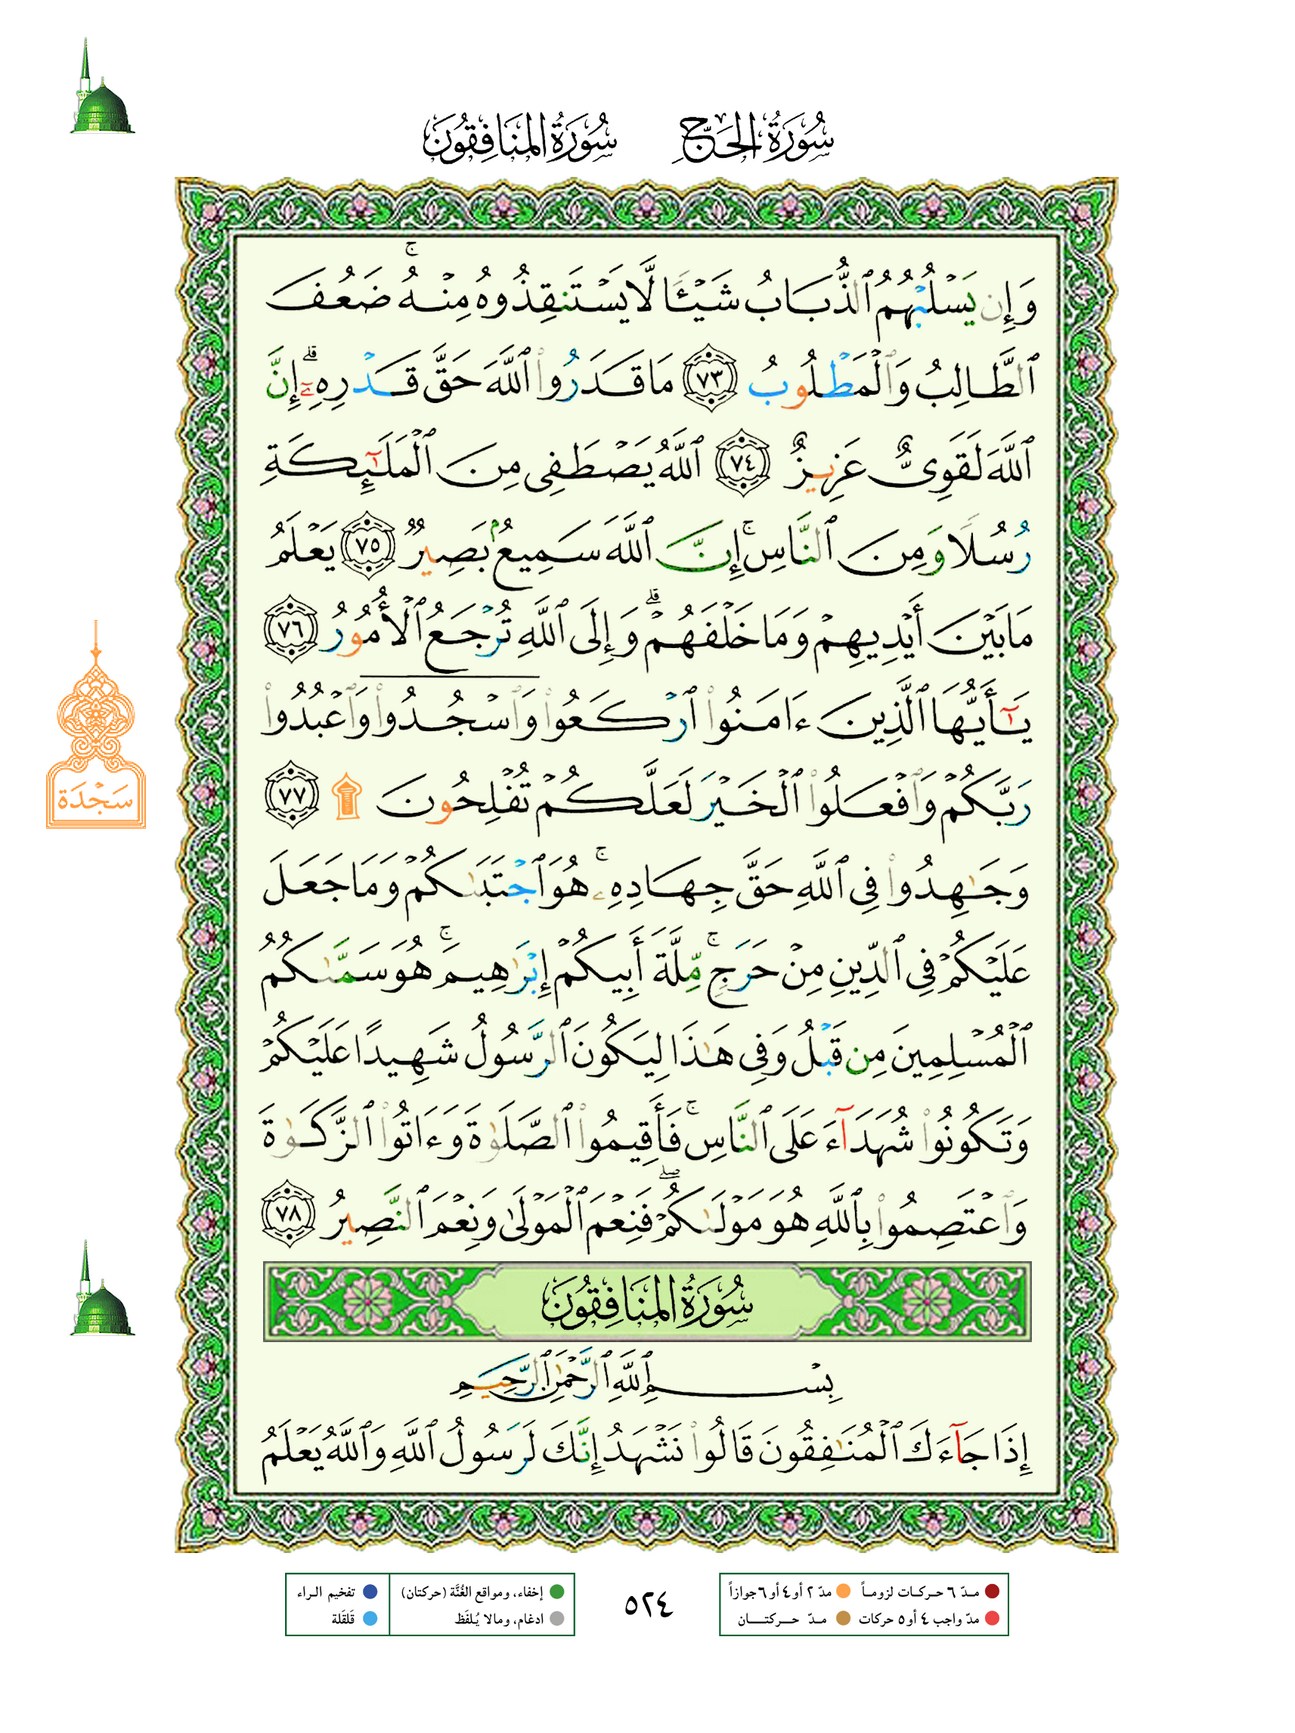 سُورَةُ الحَجّ سُورَةُ المنَافِقُونَ
وَإِن يَسْلُبْهُمُ ٱلذُّبَابُ شَيْـًٔا لَّا يَسْتَنقِذُوهُ مِنْهُ ۚ ضَعُفَ
ٱلطَّالِبُ وَٱلْمَطْلُوبُ ﴿٧٣﴾ مَا قَدَرُوا۟ ٱللَّهَ حَقَّ قَدْرِهِۦٓ ۗ إِنَّ
ٱللَّهَ لَقَوِىٌّ عَزِيزٌ ﴿٧٤﴾ ٱللَّهُ يَصْطَفِى مِنَ ٱلْمَلَـٰٓئِكَةِ
رُسُلًا وَمِنَ ٱلنَّاسِ ۚ إِنَّ ٱللَّهَ سَمِيعٌۢ بَصِيرٌ ﴿٧٥﴾ يَعْلَمُ
مَا بَيْنَ أَيْدِيهِمْ وَمَا خَلْفَهُمْ ۗ وَإِلَى ٱللَّهِ تُرْجَعُ ٱلْأُمُورُ ﴿٧٦﴾
يَـٰٓأَيُّهَا ٱلَّذِينَ ءَامَنُوا۟ ٱرْكَعُوا۟ وَٱسْجُدُوا۟ وَٱعْبُدُوا۟
رَبَّكُمْ وَٱفْعَلُوا۟ ٱلْخَيْرَ لَعَلَّكُمْ تُفْلِحُونَ ۩ ﴿٧٧﴾
سَجْدَة
وَجَـٰهِدُوا۟ فِى ٱللَّهِ حَقَّ جِهَادِهِۦ ۚ هُوَ ٱجْتَبَىٰكُمْ وَمَا جَعَلَ
عَلَيْكُمْ فِى ٱلدِّينِ مِنْ حَرَجٍ ۚ مِّلَّةَ أَبِيكُمْ إِبْرَٰهِيمَ ۚ هُوَ سَمَّىٰكُمُ
ٱلْمُسْلِمِينَ مِن قَبْلُ وَفِى هَـٰذَا لِيَكُونَ ٱلرَّسُولُ شَهِيدًا عَلَيْكُمْ
وَتَكُونُوا۟ شُهَدَآءَ عَلَى ٱلنَّاسِ ۚ فَأَقِيمُوا۟ ٱلصَّلَوٰةَ وَءَاتُوا۟ ٱلزَّكَوٰةَ
وَٱعْتَصِمُوا۟ بِٱللَّهِ هُوَ مَوْلَىٰكُمْ ۖ فَنِعْمَ ٱلْمَوْلَىٰ وَنِعْمَ ٱلنَّصِيرُ ﴿٧٨﴾
سُورَةُ المنَافِقُونَ
بِسْمِ ٱللَّهِ ٱلرَّحْمَـٰنِ ٱلرَّحِيمِ
إِذَا جَآءَكَ ٱلْمُنَـٰفِقُونَ قَالُوا۟ نَشْهَدُ إِنَّكَ لَرَسُولُ ٱللَّهِ وَٱللَّهُ يَعْلَمُ
مـدّ ٦ حـركـات لزومـاً مدّ ٢ أو ٤ أو ٦ جوازاً
مدّ واجب ٤ أو ٥ حركات مـدّ حـــركتــــان
٥٢٤
إخفاء، ومواقع الغُنَّة (حركتان) تفخيم الراء
ادغام، ومالا يُـلفَظ قَلقَلة